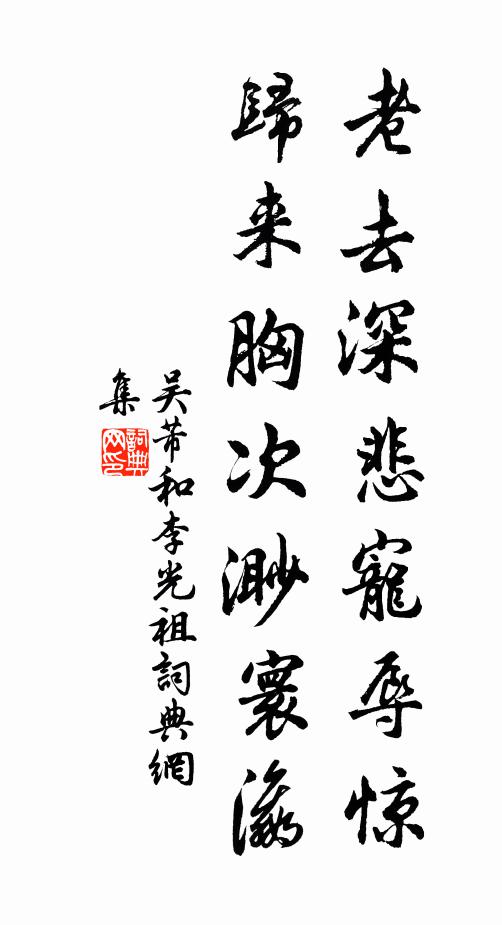 老去深悲寵辱惊
歸来胸次渺寰瀛
吴芾和李光祖詞典網
集
詞典网印